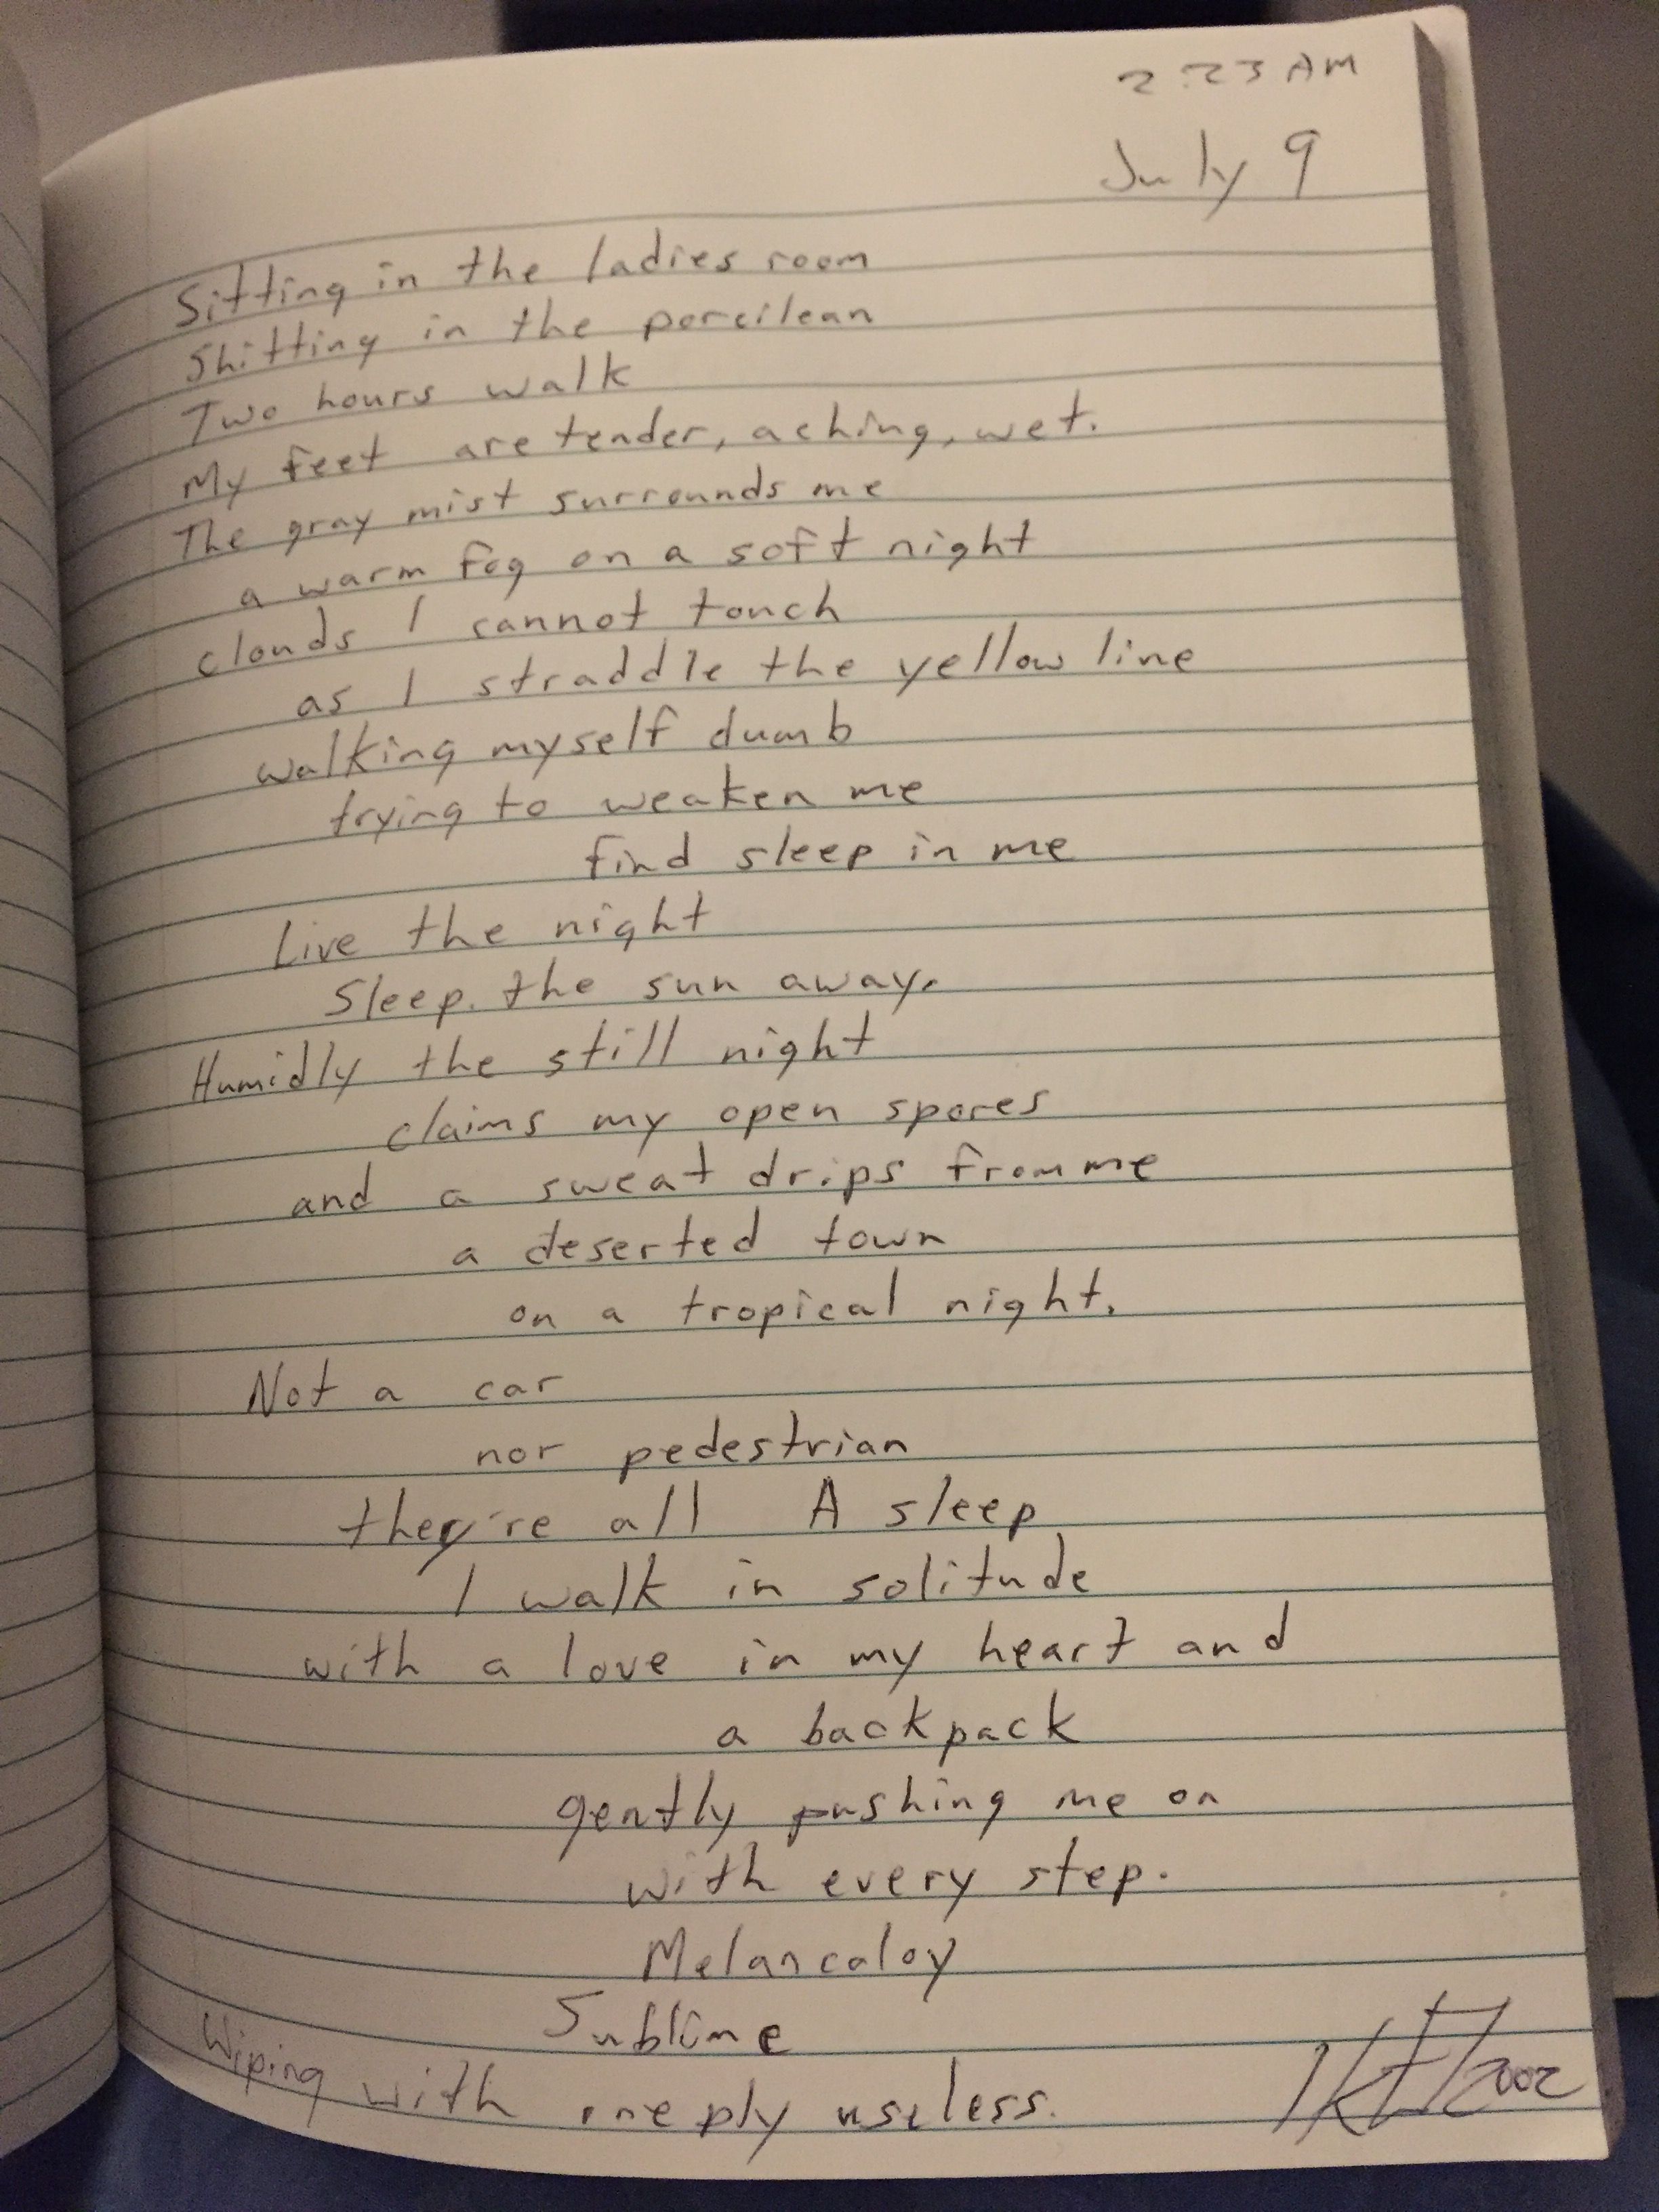 2:23 AM
July 9
Sitting in the ladies room
Shitting in the porcilean
Two hours walk
My feet are tender, aching, wet.
The gray mist surrounds me
a warm fog on a soft night
clouds I cannot touch
as I straddle the yellow line
walking myself dumb
trying to weaken me
find sleep in me
Live the night
Sleep. the sun away.
Humidly the still night
claims my open spores
and a sweat drips from me
a deserted town
on a tropical night.
Not a car
nor pedestrian
they're all A sleep
I walk in solitude
with a love in my heart and
a backpack
gently pushing me on
with every step.
Melancaloy
Sublime
Wiping with one ply useless.
2002